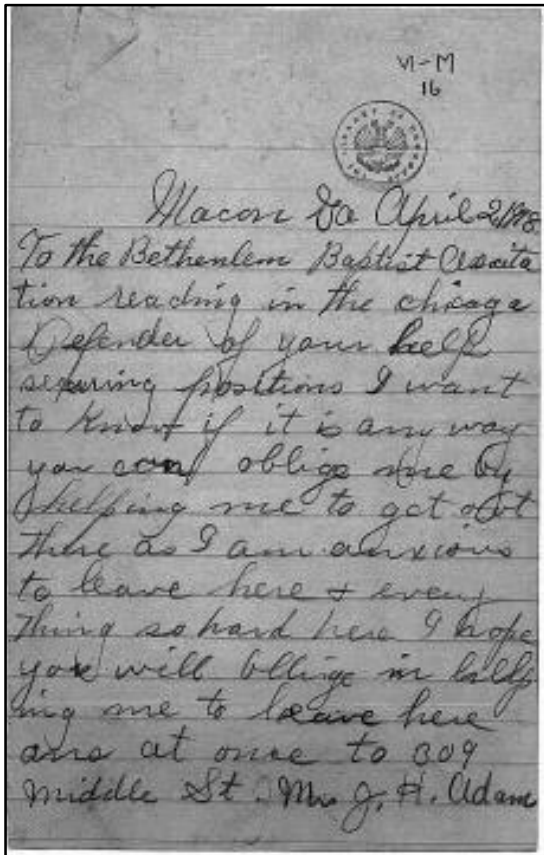 VI-M
16
Macon Ga April 2, 1918
To the Bethenlem Baptist Asocita
tion reading in the chicago
Defender of your help
securing positions I want
to know if it is any way
you can oblige me by
helping me to get out
there as I am anxious
to leave here & every
thing so hard here I hope
you will oblige in help
ing me to leave here
ans at once to 309
Middle St. Mrs J. H. Adam